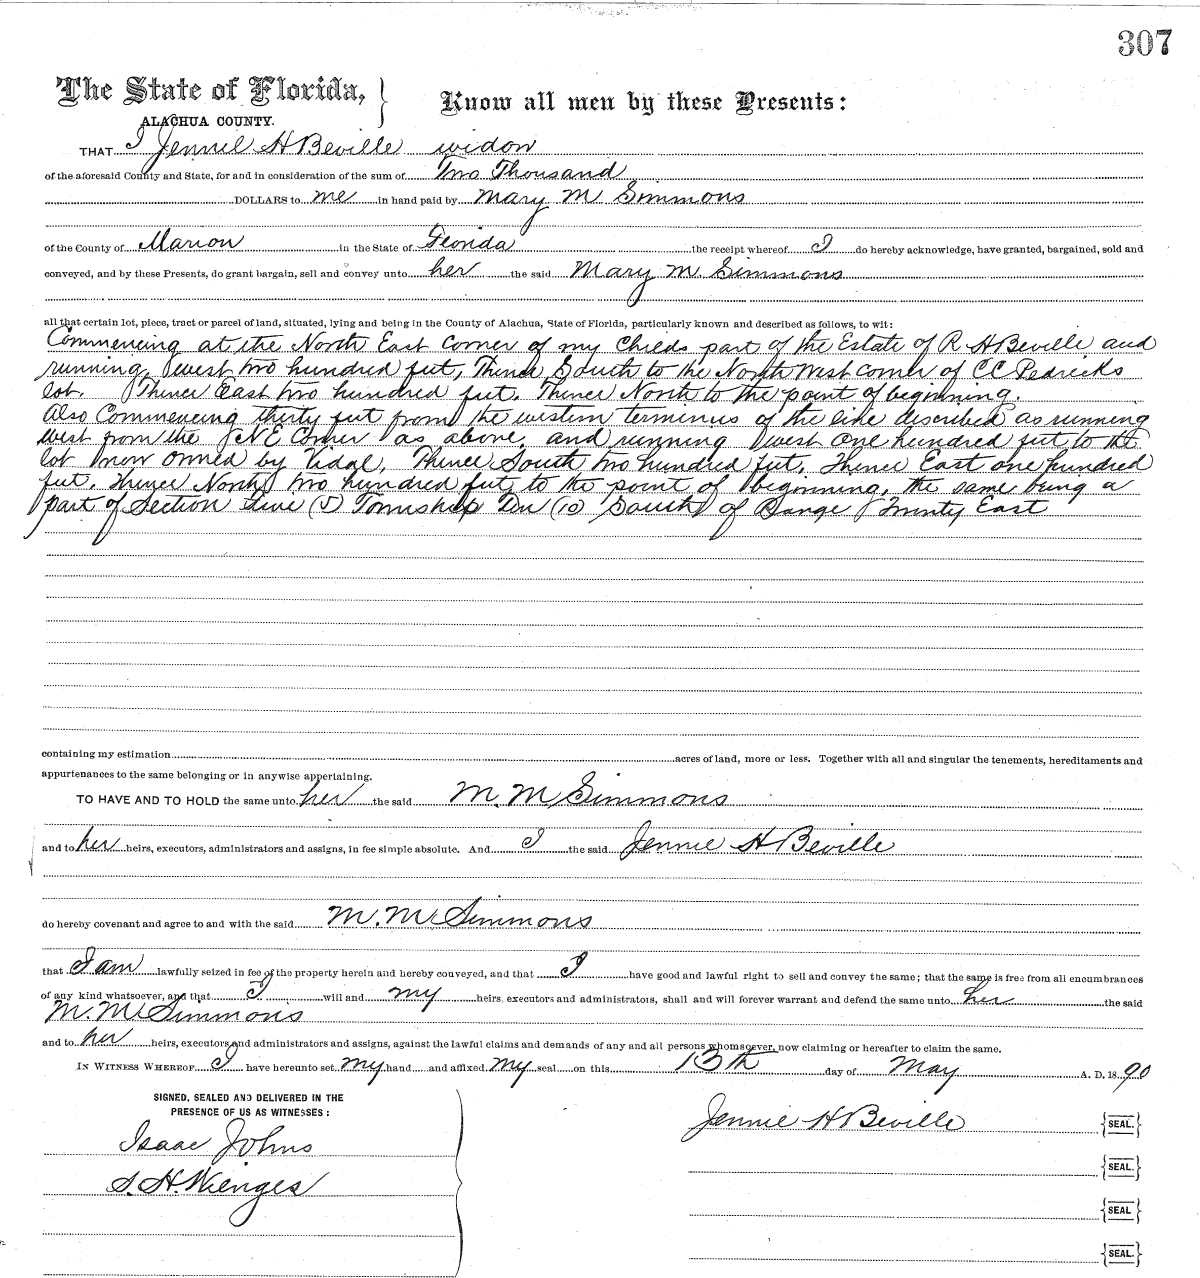 307
The State of Florida,
ALACHUA COUNTY.
Know all men by these Presents:
THAT I Jennie H Beville widow
of the aforesaid County and State, for and in consideration of the sum of Two Thousand
DOLLARS to me in hand paid by Mary M Simmons
of the County of Marion in the State of Florida the receipt whereof I do hereby acknowledge, have granted, bargained, sold and
conveyed, and by these Presents, do grant bargain, sell and convey unto her the said Mary M. Simmons
all that certain lot, piece, tract or parcel of land, situated, lying and being in the County of Alachua, State of Florida, particularly known and described as follows, to wit:
Commencing at the North East Corner of my Childs part of the Estate of R H Beville and
running west two hundred feet, Thence South to the North West corner of CC Pedricks
lot. Thence East two hundred feet. Thence North to the point of beginning.
Also Commencing thirty feet from the western terminus of the line described as running
west from the NE Corner as above, and running west one hundred feet to the
lot now owned by Vidal, Thence South two hundred feet. Thence East one hundred
feet. Thence North two hundred feet to the point of beginning, the same being a
part of Section Five (5) Township Ten (10) South of Range Twenty East
containing my estimation acres of land, more or less. Together with all and singular the tenements, hereditaments and
appurtenances to the same belonging or in anywise appertaining.
TO HAVE AND TO HOLD the same unto her the said M. M Simmons
and to her heirs, executors, administrators and assigns, in fee simple absolute. And I the said Jennie H Beville
do hereby covenant and agree to and with the said M. M Simmons
that I am lawfully seized in fee of the property herein and hereby conveyed, and that I have good and lawful right to sell and convey the same; that the same is free from all encumbrances
of any kind whatsoever, and that I will and my heirs, executors and administrators, shall and will forever warrant and defend the same unto her the said
M. M Simmons
and to her heirs, executors and administrators and assigns, against the lawful claims and demands of any and all persons whomsoever, now claiming or hereafter to claim the same.
IN WITNESS WHEREOF I have hereunto set my hand and affixed my seal on this 13th day of May A. D. 1890
SIGNED, SEALED AND DELIVERED IN THE
PRESENCE OF US AS WITNESSES:
Isaac Johns
S. H. Wienges
Jennie H Beville SEAL.
SEAL.
SEAL
SEAL.